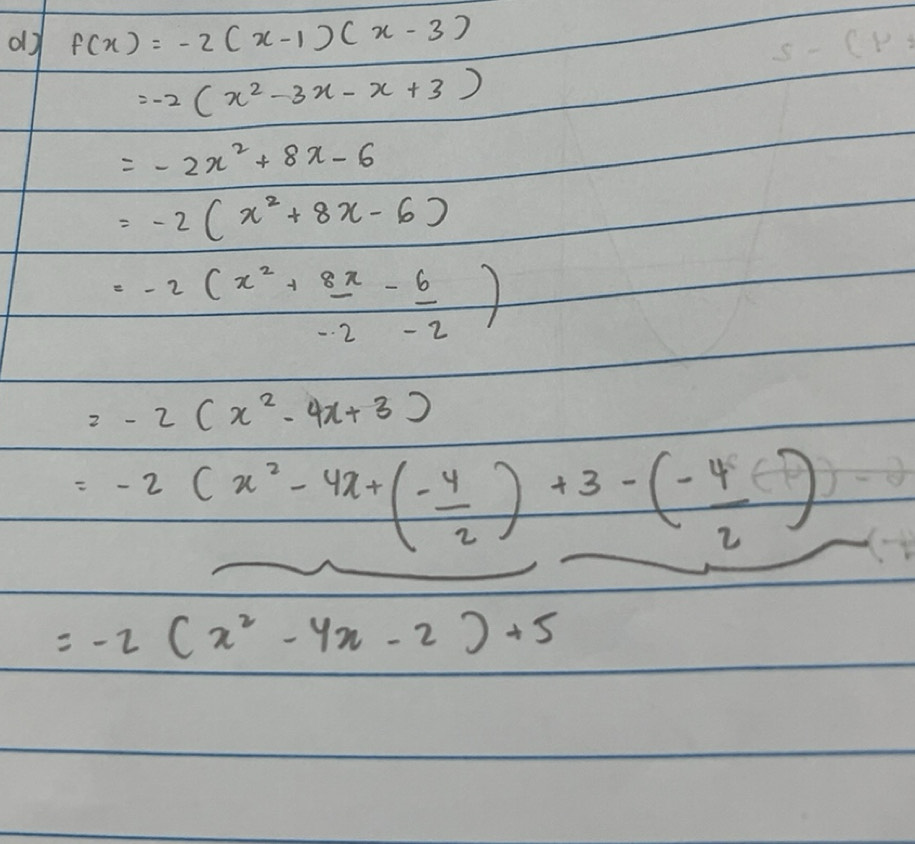 d) f(x) = -2(x-1)(x-3)
=-2(x²-3x-x+3)
= -2x²+8x-6
= -2(x²+8x-6)
= -2(x²+8x/-2 - 6/-2)
= -2(x²-4x+3)
= -2(x²-4x+(-4/2)+3-(-4/2)
= -2(x²-4x-2)+5